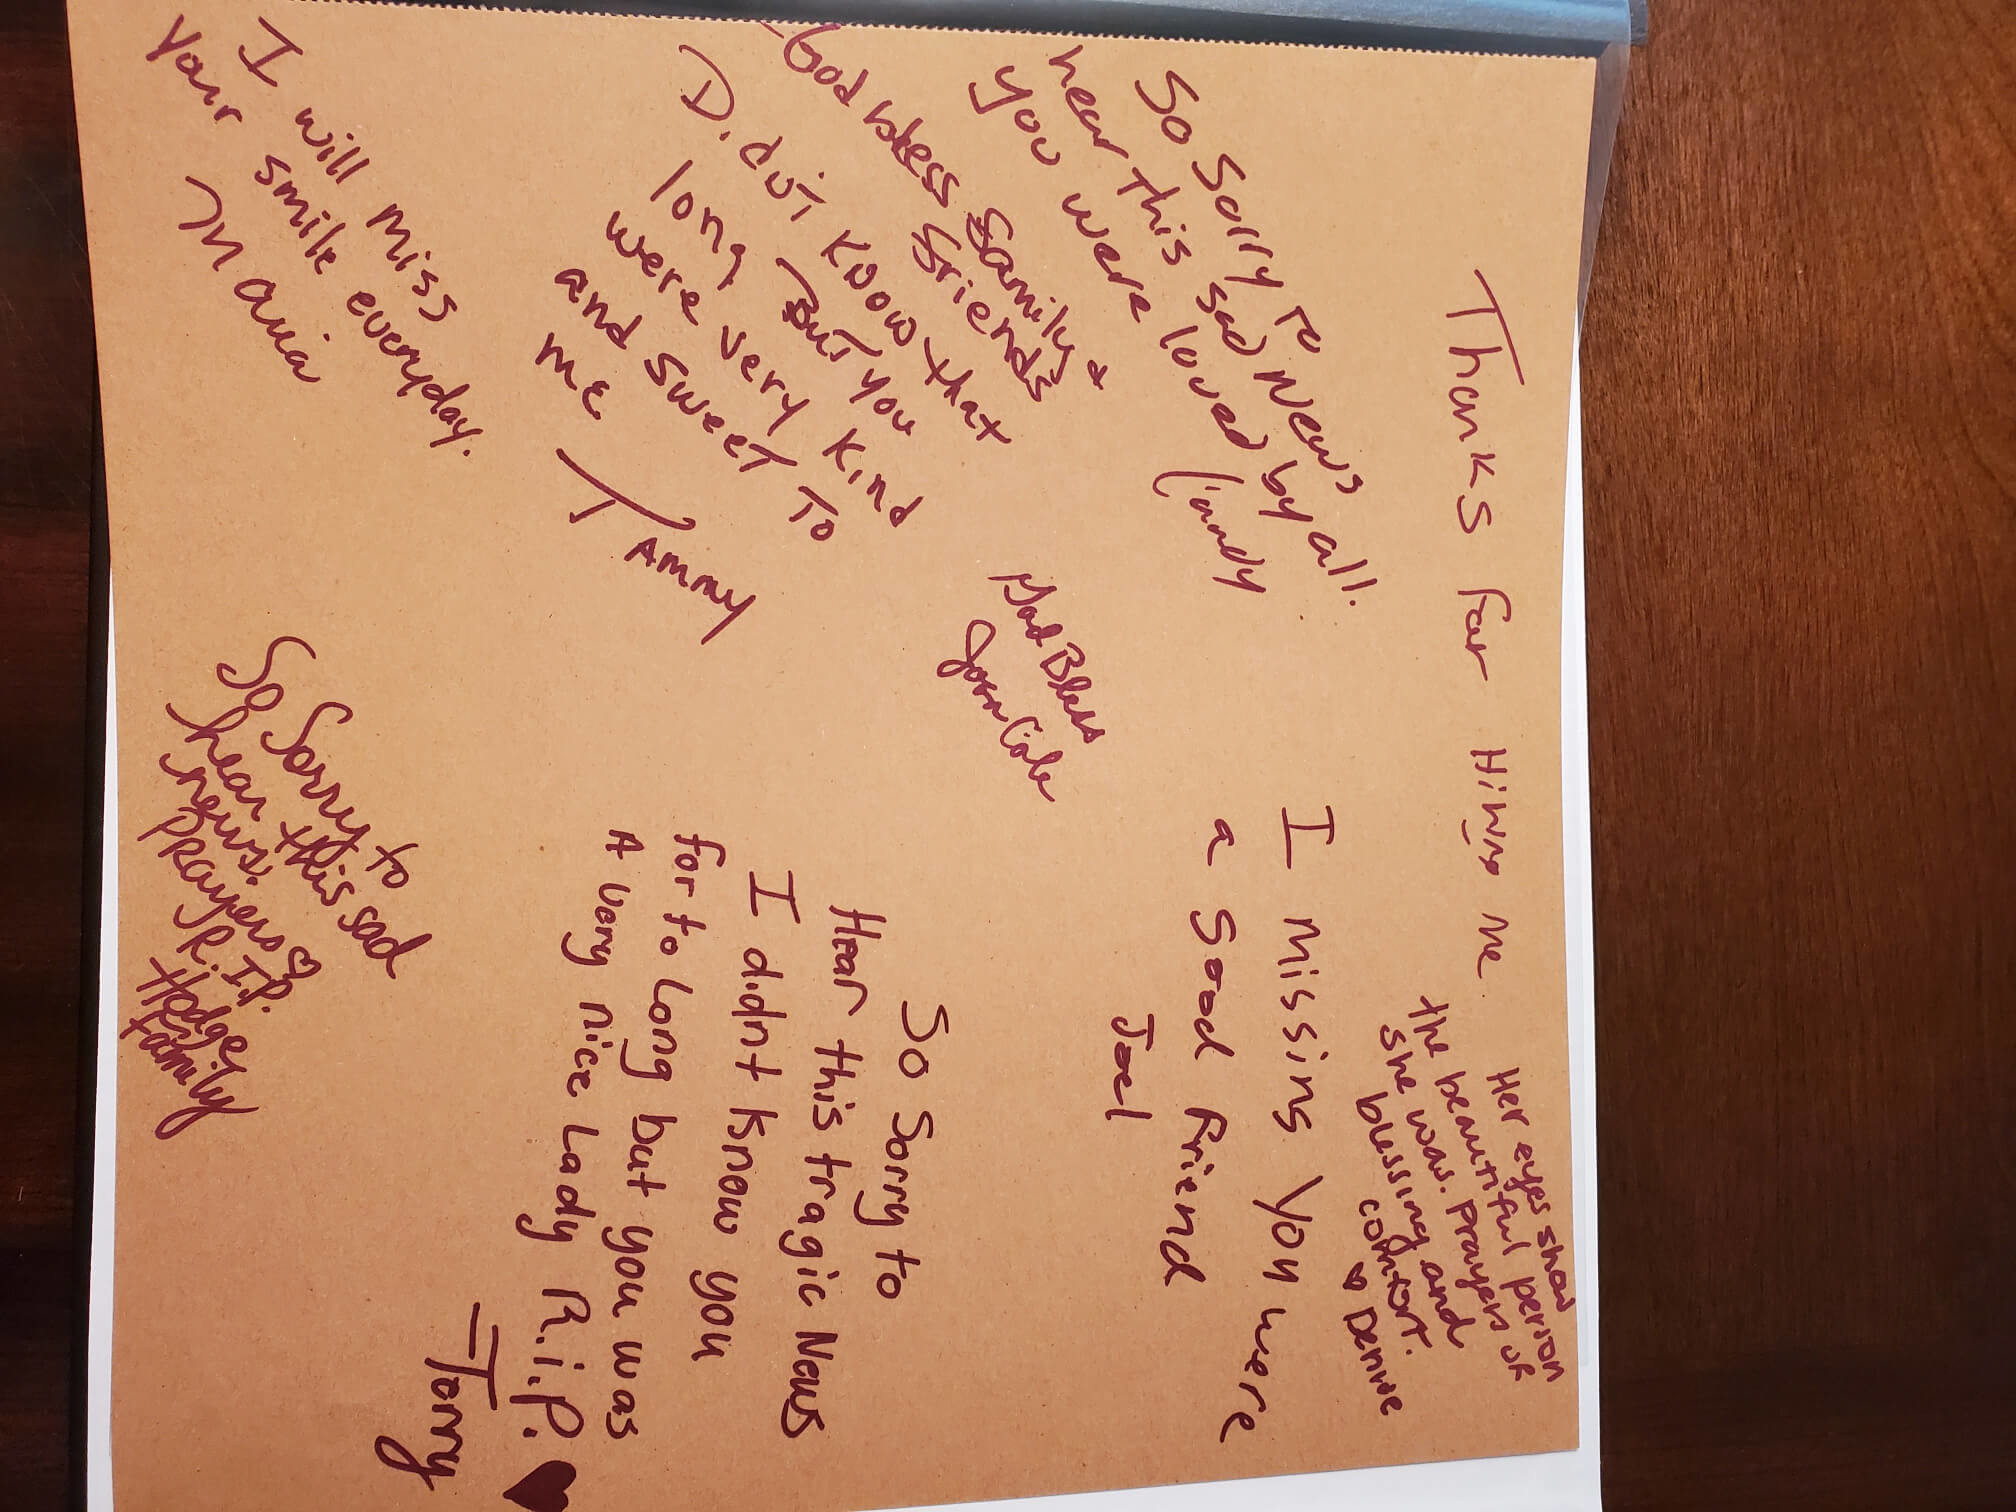 Thanks for Hiring me
Her eyes show
the beautiful person
she was. prayers of
blessing and
comfort.
♥ Denise
So Sorry To
hear This sad News
you were loved by all.
God bless family &
friends
I Missing You were
a Good friend
Joel
God Bless
D.dut Know that
long, But you
were very Kind
and sweet To
me
TAmmy
So Sorry to
Hear this tragic News
I didnt know you
for to Long but you was
A very nice Lady R.i.P. ♥
-Terry
I will miss
your smile everyday.
Maria
So Sorry to
hear this sad
news.
prayers ♡
R.I.P.
Hodge
family